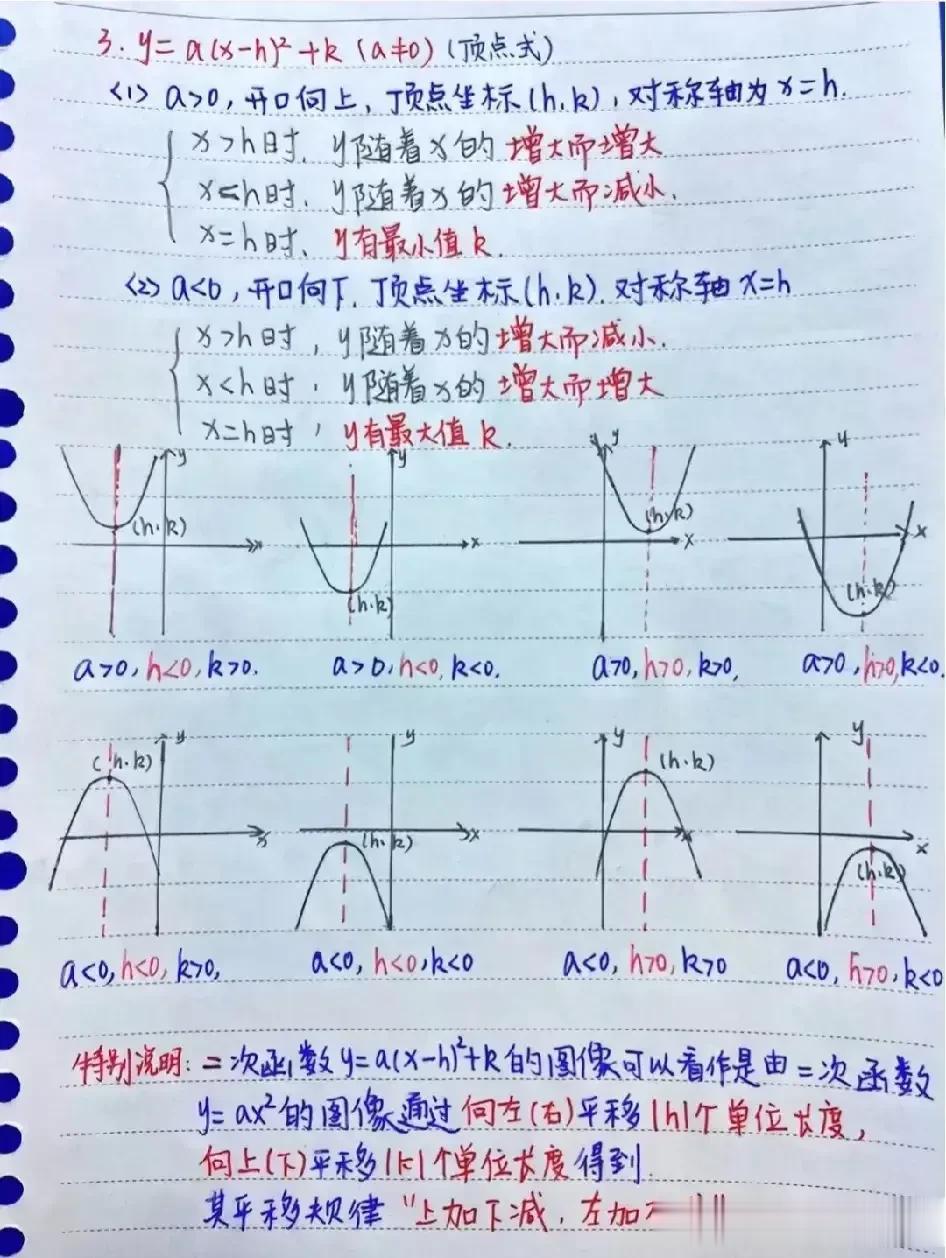 3. y=a(x-h)²+k (a≠0) (顶点式)
<1> a>0, 开口向上, 顶点坐标(h.k), 对称轴为x=h.
x>h时. y随着x的增大而增大
x<h时. y随着x的增大而减小.
x=h时. y有最小值k.
<2> a<0, 开口向下. 顶点坐标(h.k). 对称轴x=h
x>h时, y随着x的增大而减小.
x<h时, y随着x的增大而增大
x=h时, y有最大值k.
y y y y
(h.k) (h.k)
x x x x
(h.k) (h.k)
a>0, h<0, k>0. a>0, h<0, k<0. a>0, h>0, k>0, a>0, h>0, k<0.
y y y y
(h.k) (h.k)
x x x x
(h.k) (h.k)
a<0, h<0, k>0, a<0, h<0, k<0 a<0, h>0, k>0 a<0, h>0, k<0
特别说明: 二次函数y=a(x-h)²+k的图像可以看作是由二次函数
y=ax²的图像通过向左(右)平移|h|个单位长度,
向上(下)平移|k|个单位长度得到.
其平移规律“上加下减. 左加